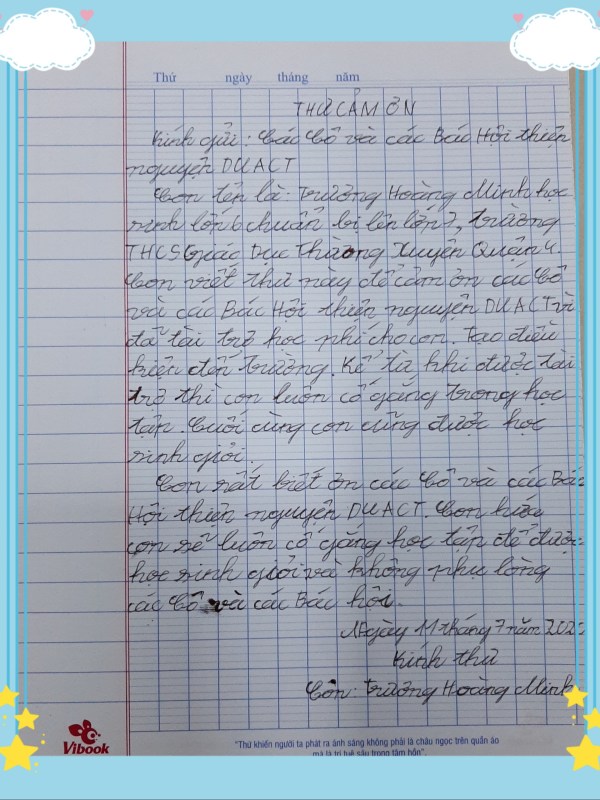 Thứ ngày tháng năm
THƯ CẢM ƠN
Kính gửi: Các Cô và các Bác Hội thiện
nguyện DUACT
Con tên là: Trương Hoàng Minh học
sinh lớp 6 chuẩn bị lên lớp 7, trường
THCS Giác Dục Thường Xuyên Quận 4.
Con viết thư này để cảm ơn các Cô
và các Bác Hội thiện nguyện DUACT vì
đã tài trợ học phí cho con. Tạo điều
kiện đến trường. Kể từ khi được tài
trợ thì con luôn cố gắng trong học
tập. Cuối cùng con cũng được học
sinh giỏi.
Con rất biết ơn các Cô và các Bác
Hội thiện nguyện DUACT. Con hứa
con sẽ luôn cố gắng học tập để được
học sinh giỏi và không phụ lòng
các Cô và các Bác hội.
Ngày 11 tháng 7 năm 202
Kính thư
Con: Trương Hoàng Minh
Vibook
"Thứ khiến người ta phát ra ánh sáng không phải là châu ngọc trên quần áo
mà là trí tuệ sâu trong tâm hồn".